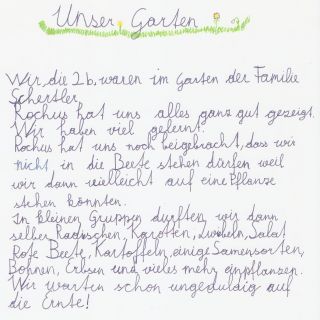 Unser Garten
Wir, die 2b, waren im Garten der Familie
Schertler.
Rochus hat uns alles ganz gut gezeigt.
Wir haben viel gelernt.
Rochus hat uns noch beigebracht, dass wir
nicht in die Beete stehen dürfen weil
wir dann vielleicht auf eine Pflanze
stehen könnten.
In kleinen Gruppen durften wir dann
selber Radieschen, Karotten, Zwiebeln, Salat
Rote Beete, Kartoffeln, einige Samensorten,
Bohnen, Erbsen und vieles mehr einpflanzen.
Wir warten schon ungeduldig auf
die Ernte!